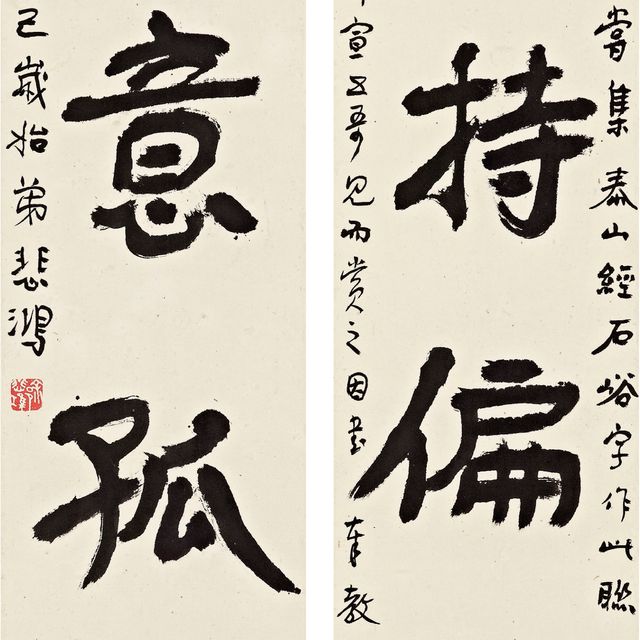 嘗集泰山經石峪字作此聯
持偏
宣五哥見而賞之因書奉教
意孤
己歲始弟悲鴻